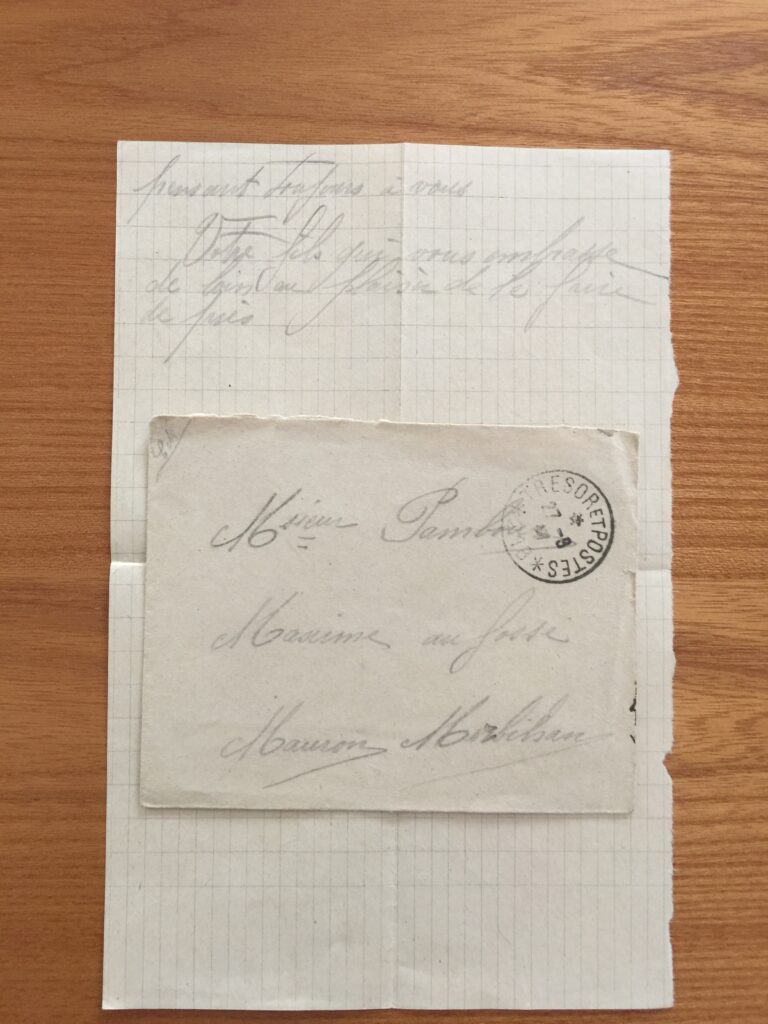 pensant toujours à vous
Votre fils qui vous embrasse
de loin au plaisir de le faire
de près
Msieur Pambou
TRESOR ET POSTES
27 -8
Maxime au fossé
Mauron Morbihan